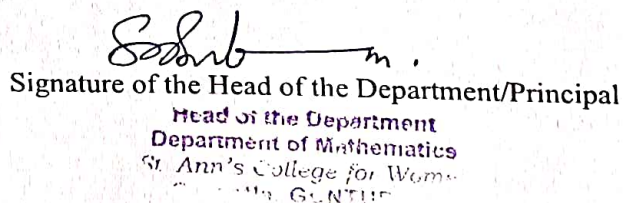 Signature of the Head of the Department/Principal
Head of the Department
Department of Mathematics
St. Ann's College for